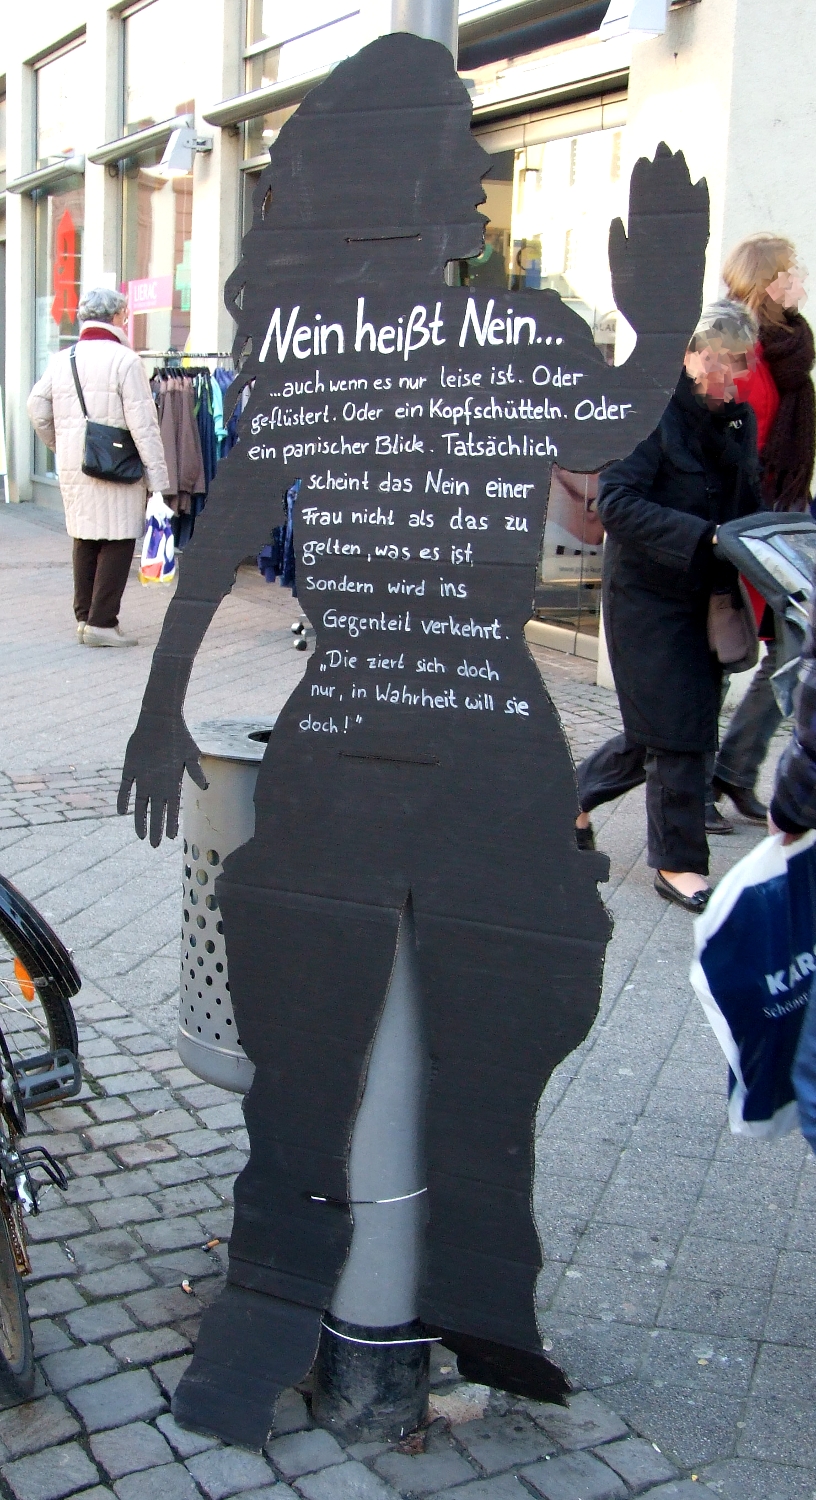 Nein heißt Nein...
...auch wenn es nur leise ist. Oder
geflüstert. Oder ein Kopfschütteln. Oder
ein panischer Blick. Tatsächlich
scheint das Nein einer
Frau nicht als das zu
gelten, was es ist,
sondern wird ins
Gegenteil verkehrt.
„Die ziert sich doch
nur, in Wahrheit will sie
doch!"
LIERAC